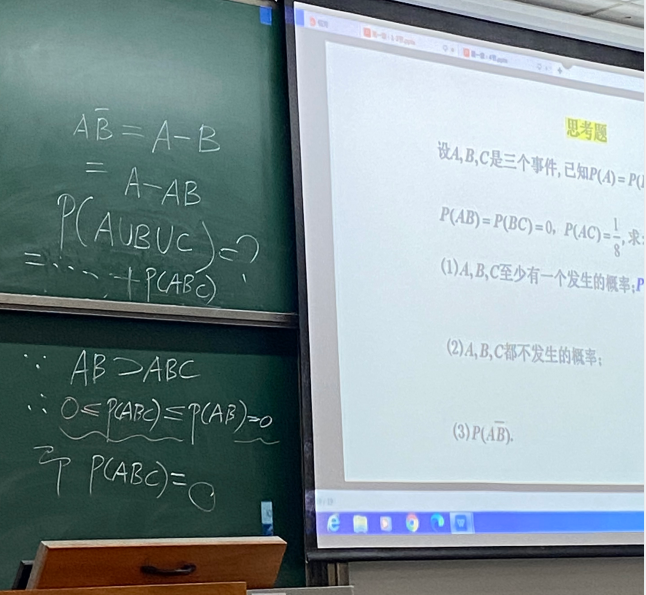 AB̅ = A-B
= A-AB
P(A∪B∪C)=?
=……+P(ABC)
∵ AB⊃ABC
∴ 0≤P(ABC)≤P(AB)=0
P(ABC)=0
思考题
设A,B,C是三个事件,已知P(A)=P(
P(AB)=P(BC)=0, P(AC)=1/8,求:
(1)A,B,C至少有一个发生的概率;P
(2)A,B,C都不发生的概率;
(3)P(AB̅).